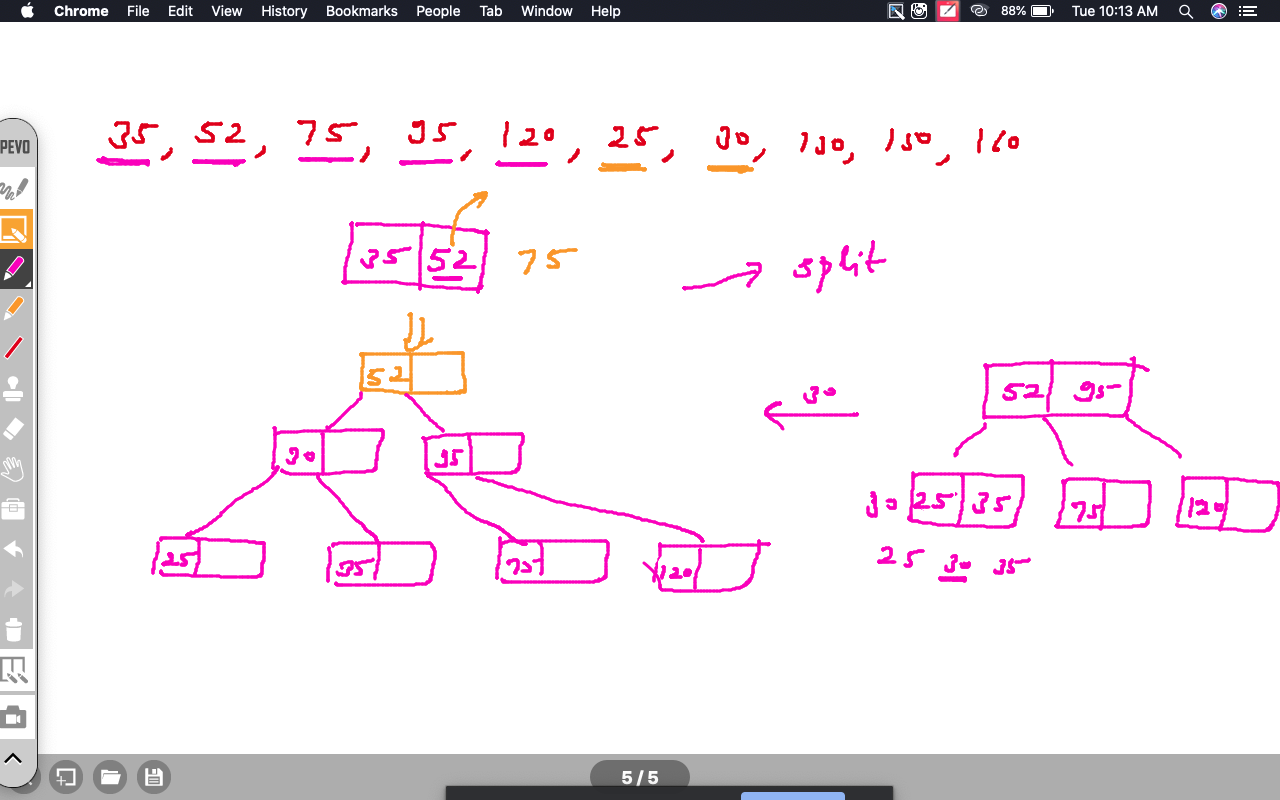 Chrome File Edit View History Bookmarks People Tab Window Help 88% Tue 10:13 AM
PEVO
35, 52, 75, 95, 120, 25, 30, 130, 150, 160
35 52 75
split
52
30
52 95
30 95
30 25 35 75 120
25 35 75 120
25 30 35
5 / 5